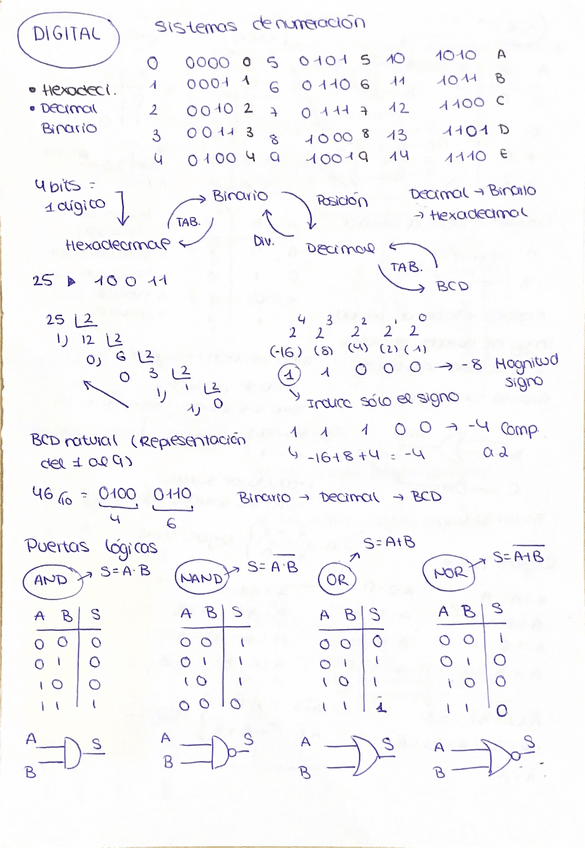 DIGITAL
Sistemas de numeración
0 0000 0 5 0101 5 10 1010 A
• Hexadeci. 1 0001 1 6 0110 6 11 1011 B
• Decimal 2 0010 2 7 0111 7 12 1100 C
Binario 3 0011 3 8 1000 8 13 1101 D
4 0100 4 9 1001 9 14 1110 E
4 bits =
1 dígico
Binario Posición Decimal → Binario
TAB. → Hexadecimal
Hexadecimal Div. Decimal
TAB.
BCD
25 ▶ 10011
25 |2
1) 12 |2
0) 6 |2
0 3 |2
1) 1 |2
1) 0
2⁴ 2³ 2² 2¹ 2⁰
(-16) (8) (4) (2) (1)
1 1 0 0 0 → -8 Magnitud
signo
Indica sólo el signo
1 1 1 0 0 → -4 Comp.
↳ -16+8+4 = -4 a 2
BCD natural (Representación
del 1 al 9)
46₍₁₀ = 0100 0110 Binario → Decimal → BCD
4 6
Puertas lógicas
AND → S=A·B NAND → S=A̅·̅B̅ OR → S=A+B NOR → S=A̅+̅B̅
A B S A B S A B S A B S
0 0 0 0 0 1 0 0 0 0 0 1
0 1 0 0 1 1 0 1 1 0 1 0
1 0 0 1 0 1 1 0 1 1 0 0
1 1 1 0 0 0 1 1 1 1 1 0
A S A S A S A S
B B B B